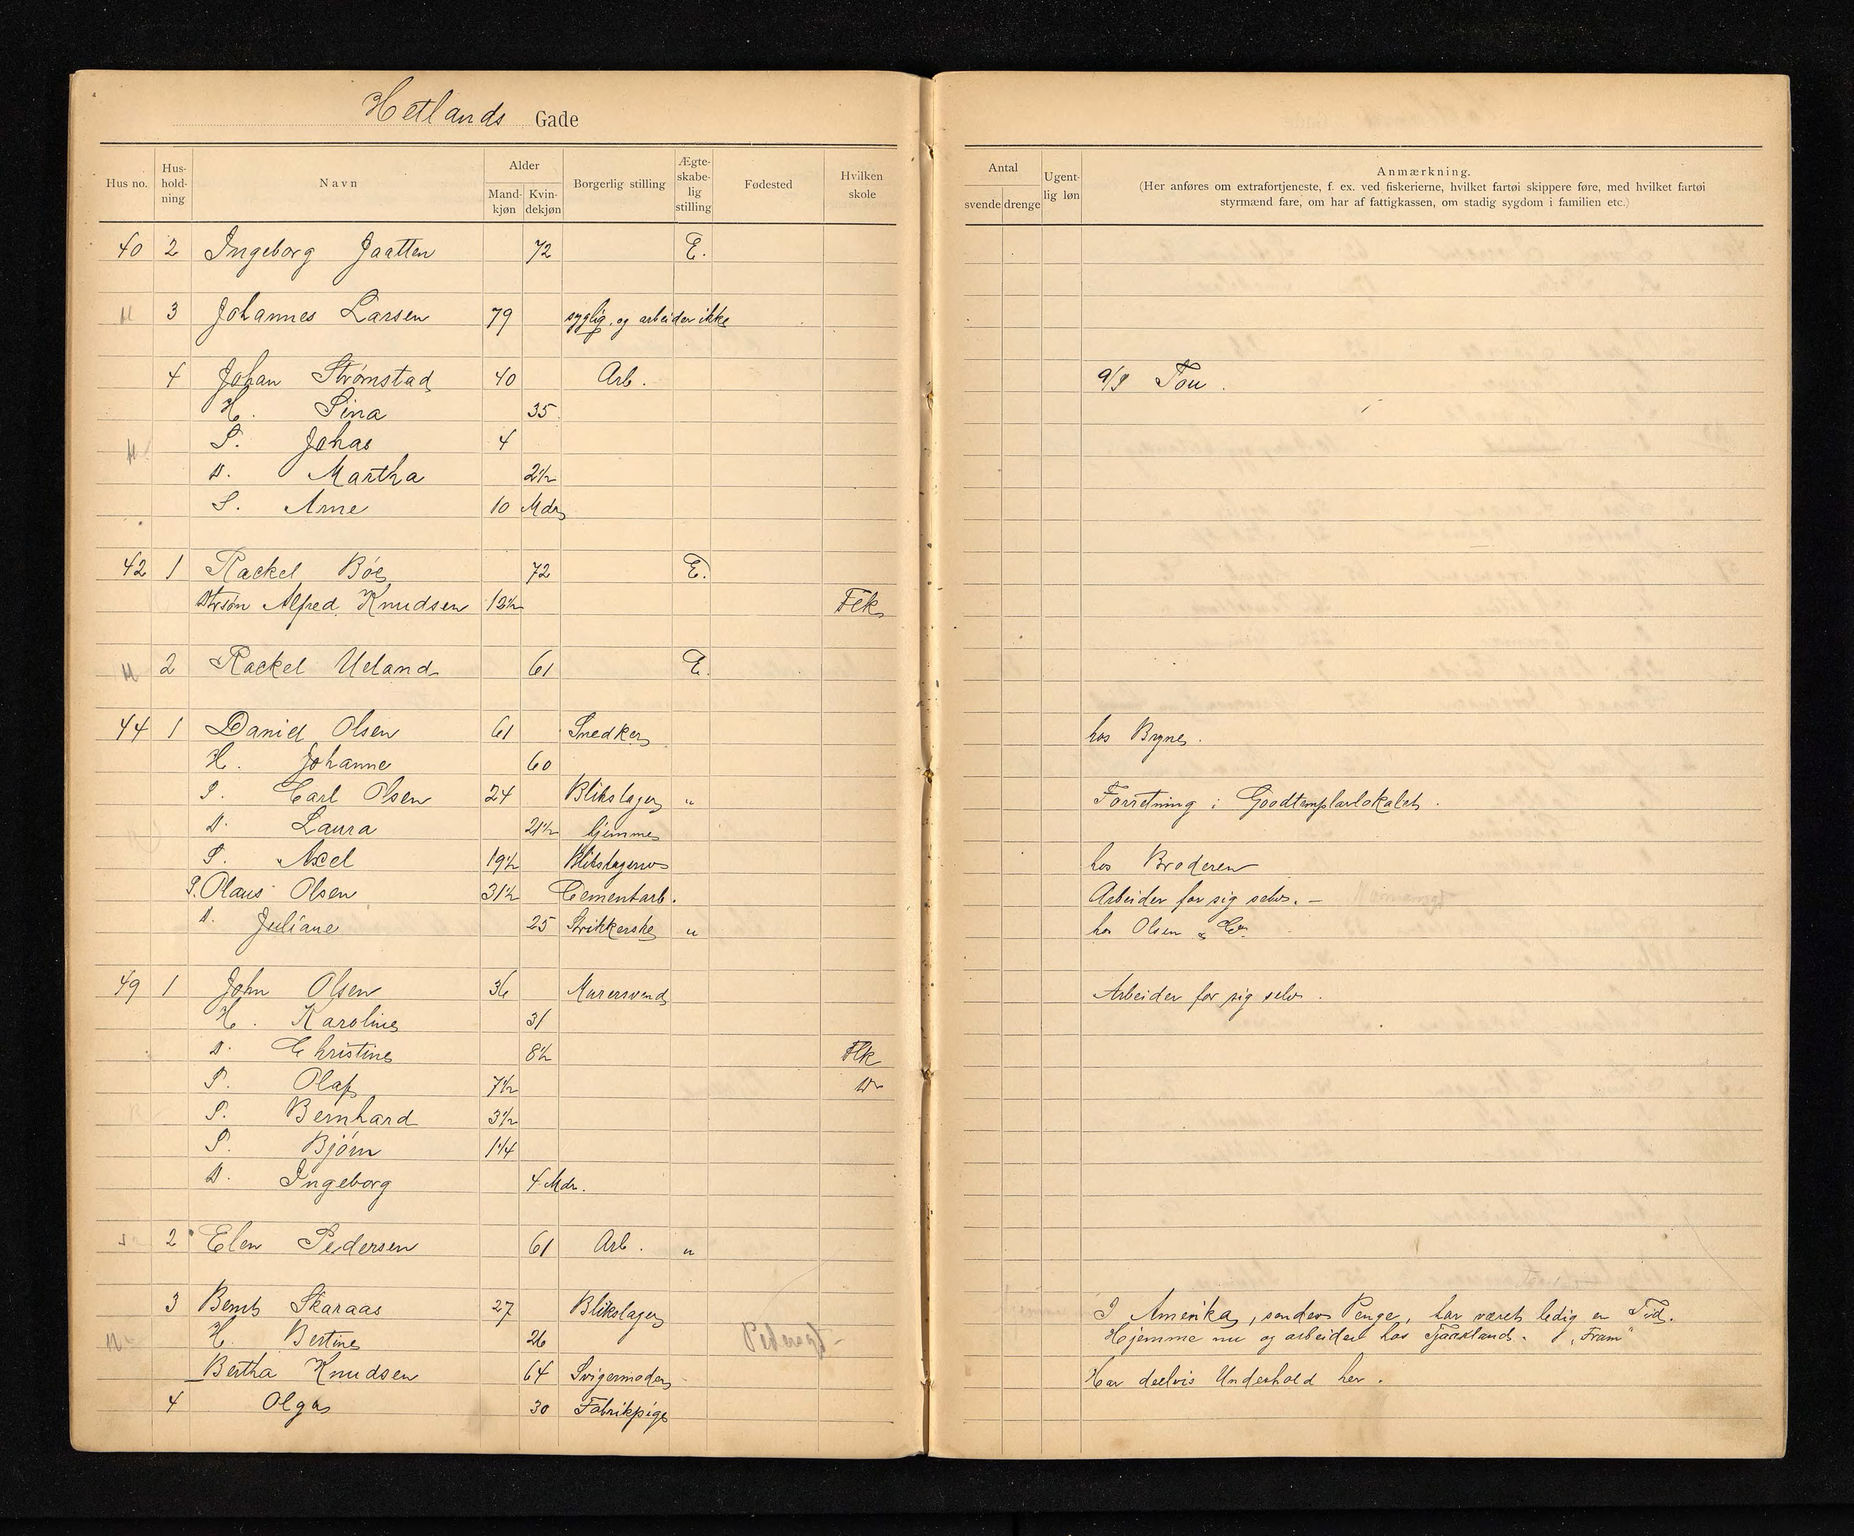 Hetlands Gade
Hus no. Hus-hold-ning Navn Alder Mand-kjøn Kvin-dekjøn Borgerlig stilling Ægte-skabe-lig stilling Fødested Hvilken skole
Antal svende drenge Ugent-lig løn Anmærkning.
(Her anføres om extrafortjeneste, f. ex. ved fiskerierne, hvilket fartøi skippere føre, med hvilket fartøi
styrmænd fare, om har af fattigkassen, om stadig sygdom i familien etc.)
40 2 Ingeborg Jaatten 72 E.
3 Johannes Larsen 79 syglig og arbeider ikke
4 Johan Strømstad 40 Arb. Tou.
H. Sina 35
S. Johas 4
D. Martha 2½
S. Arne 10 Mdr
42 1 Rackel Bøe 72 E.
Alfred Knudsen 12½ Flk
2 Rackel Ueland 61 E.
44 1 Daniel Olsen 61 Snedker hos Bryne.
H. Johanne 60
S. Carl Olsen 24 Blikslager " Forretning i Goodtemplarlokalet.
D. Laura 21½ hjemme
S. Axel 19½ Blikslagersv hos Broderen
S. Olaus Olsen 31½ Cementarb. Arbeider for sig selv. —
D. Juliane 25 Strikkerske " hos Olsen & Co
49 1 John Olsen 36 Murersvend Arbeider for sig selv.
H. Karoline 31
D. Christine 8½ Flk
S. Olaf 7½ Do
S. Bernhard 3½
S. Bjørn 1¼
D. Ingeborg 4 Mdr.
2 Elen Pedersen 61 Arb. "
3 Bernt Skaraas 27 Blikslager I Amerika, sender Penge, har været ledig en Tid.
H. Bertine 26 Hjemme nu og arbeider hos "Fram"
Bertha Knudsen 64 Svigermoder Har deelvis Underhold her.
4 Olga 30 Fabrikpige